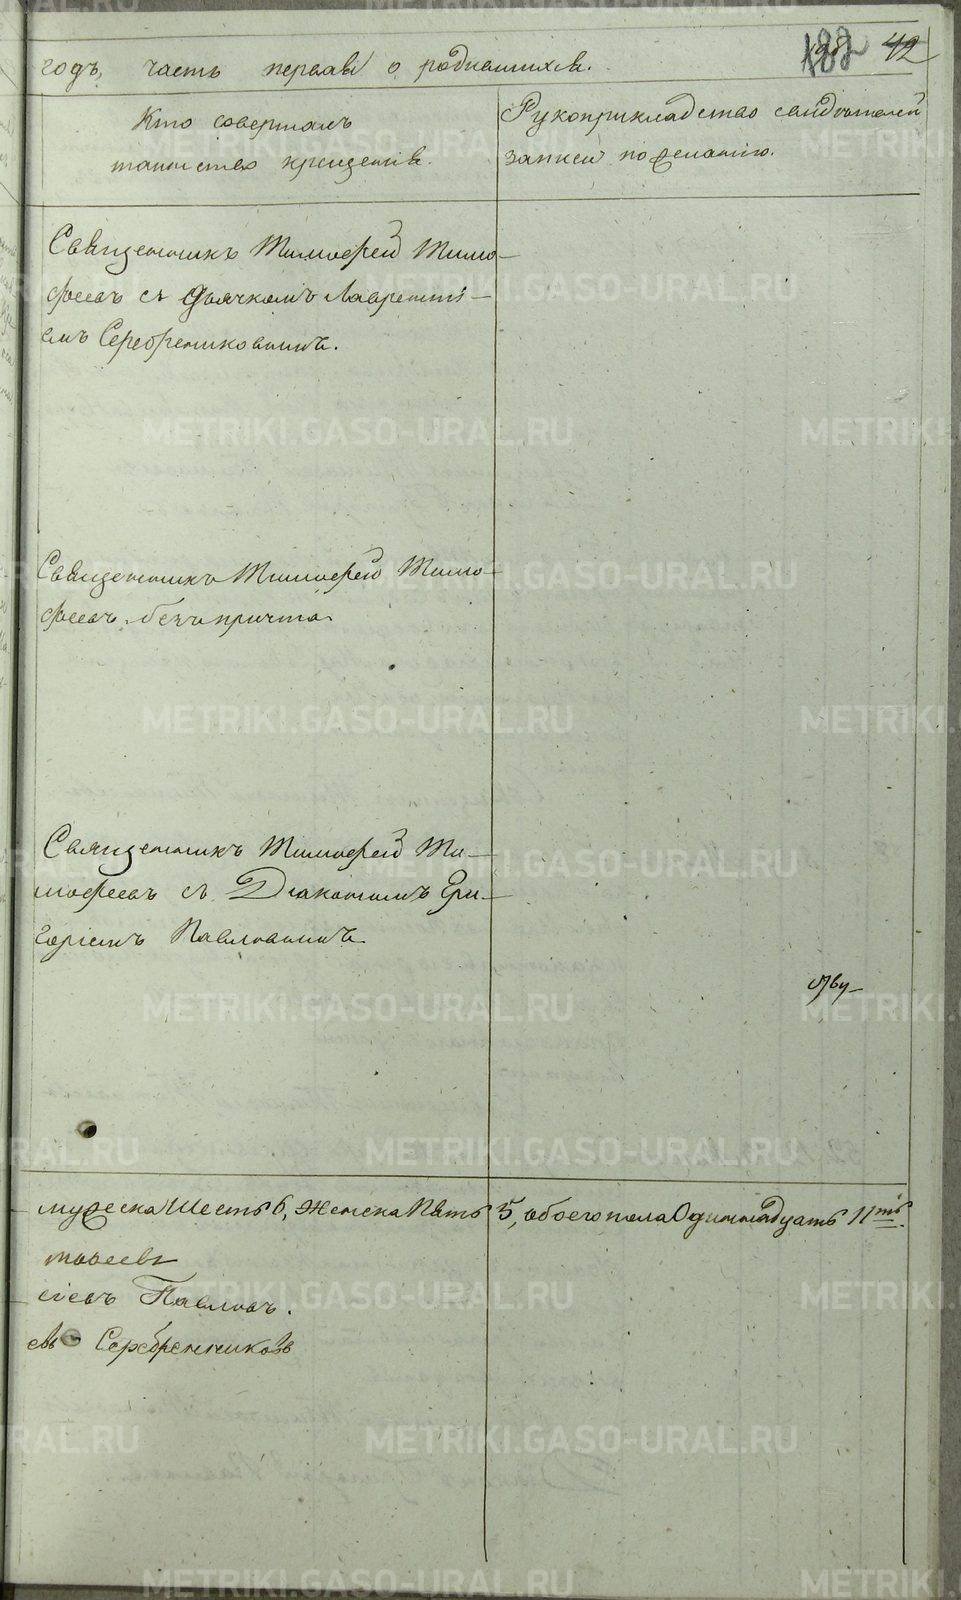 188 42
годъ, часть первая о родившихся.
Кто совершалъ
таинство крещенія.
Рукоприкладство свидѣтелей
записи по желанію.
Священникъ Тимофей Тимо-
феевъ съ Дьячкомъ Лаврентi-
емъ Серебрениковымъ.
Священникъ Тимофей Тимо-
феевъ безъ причта.
Священникъ Тимофей Ти-
мофеевъ съ Діакономъ Гри-
горіемъ Павловымъ.
мужеска Шесть 6, Женска Пять 5, обоего пола Одиннадцать 11ть.
мофеевъ
іевъ Павловъ.
евъ Серебренниковъ
METRIKI.GASO-URAL.RU